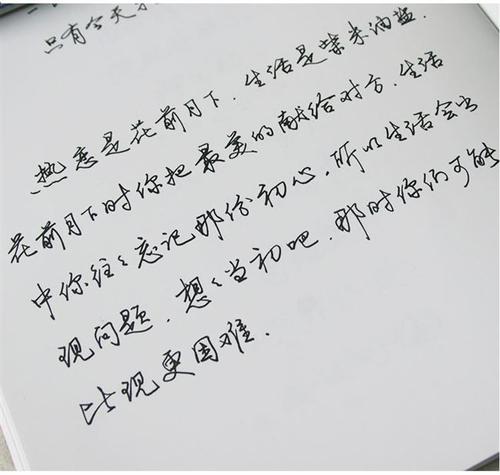 只有今天才
热恋是花前月下，生活是柴米油盐.
花前月下时你把最美的献给对方.生活
中你往々忘记那份初心.所以生活会出
现问题.想々当初吧.那时你们可能
比现更困难.